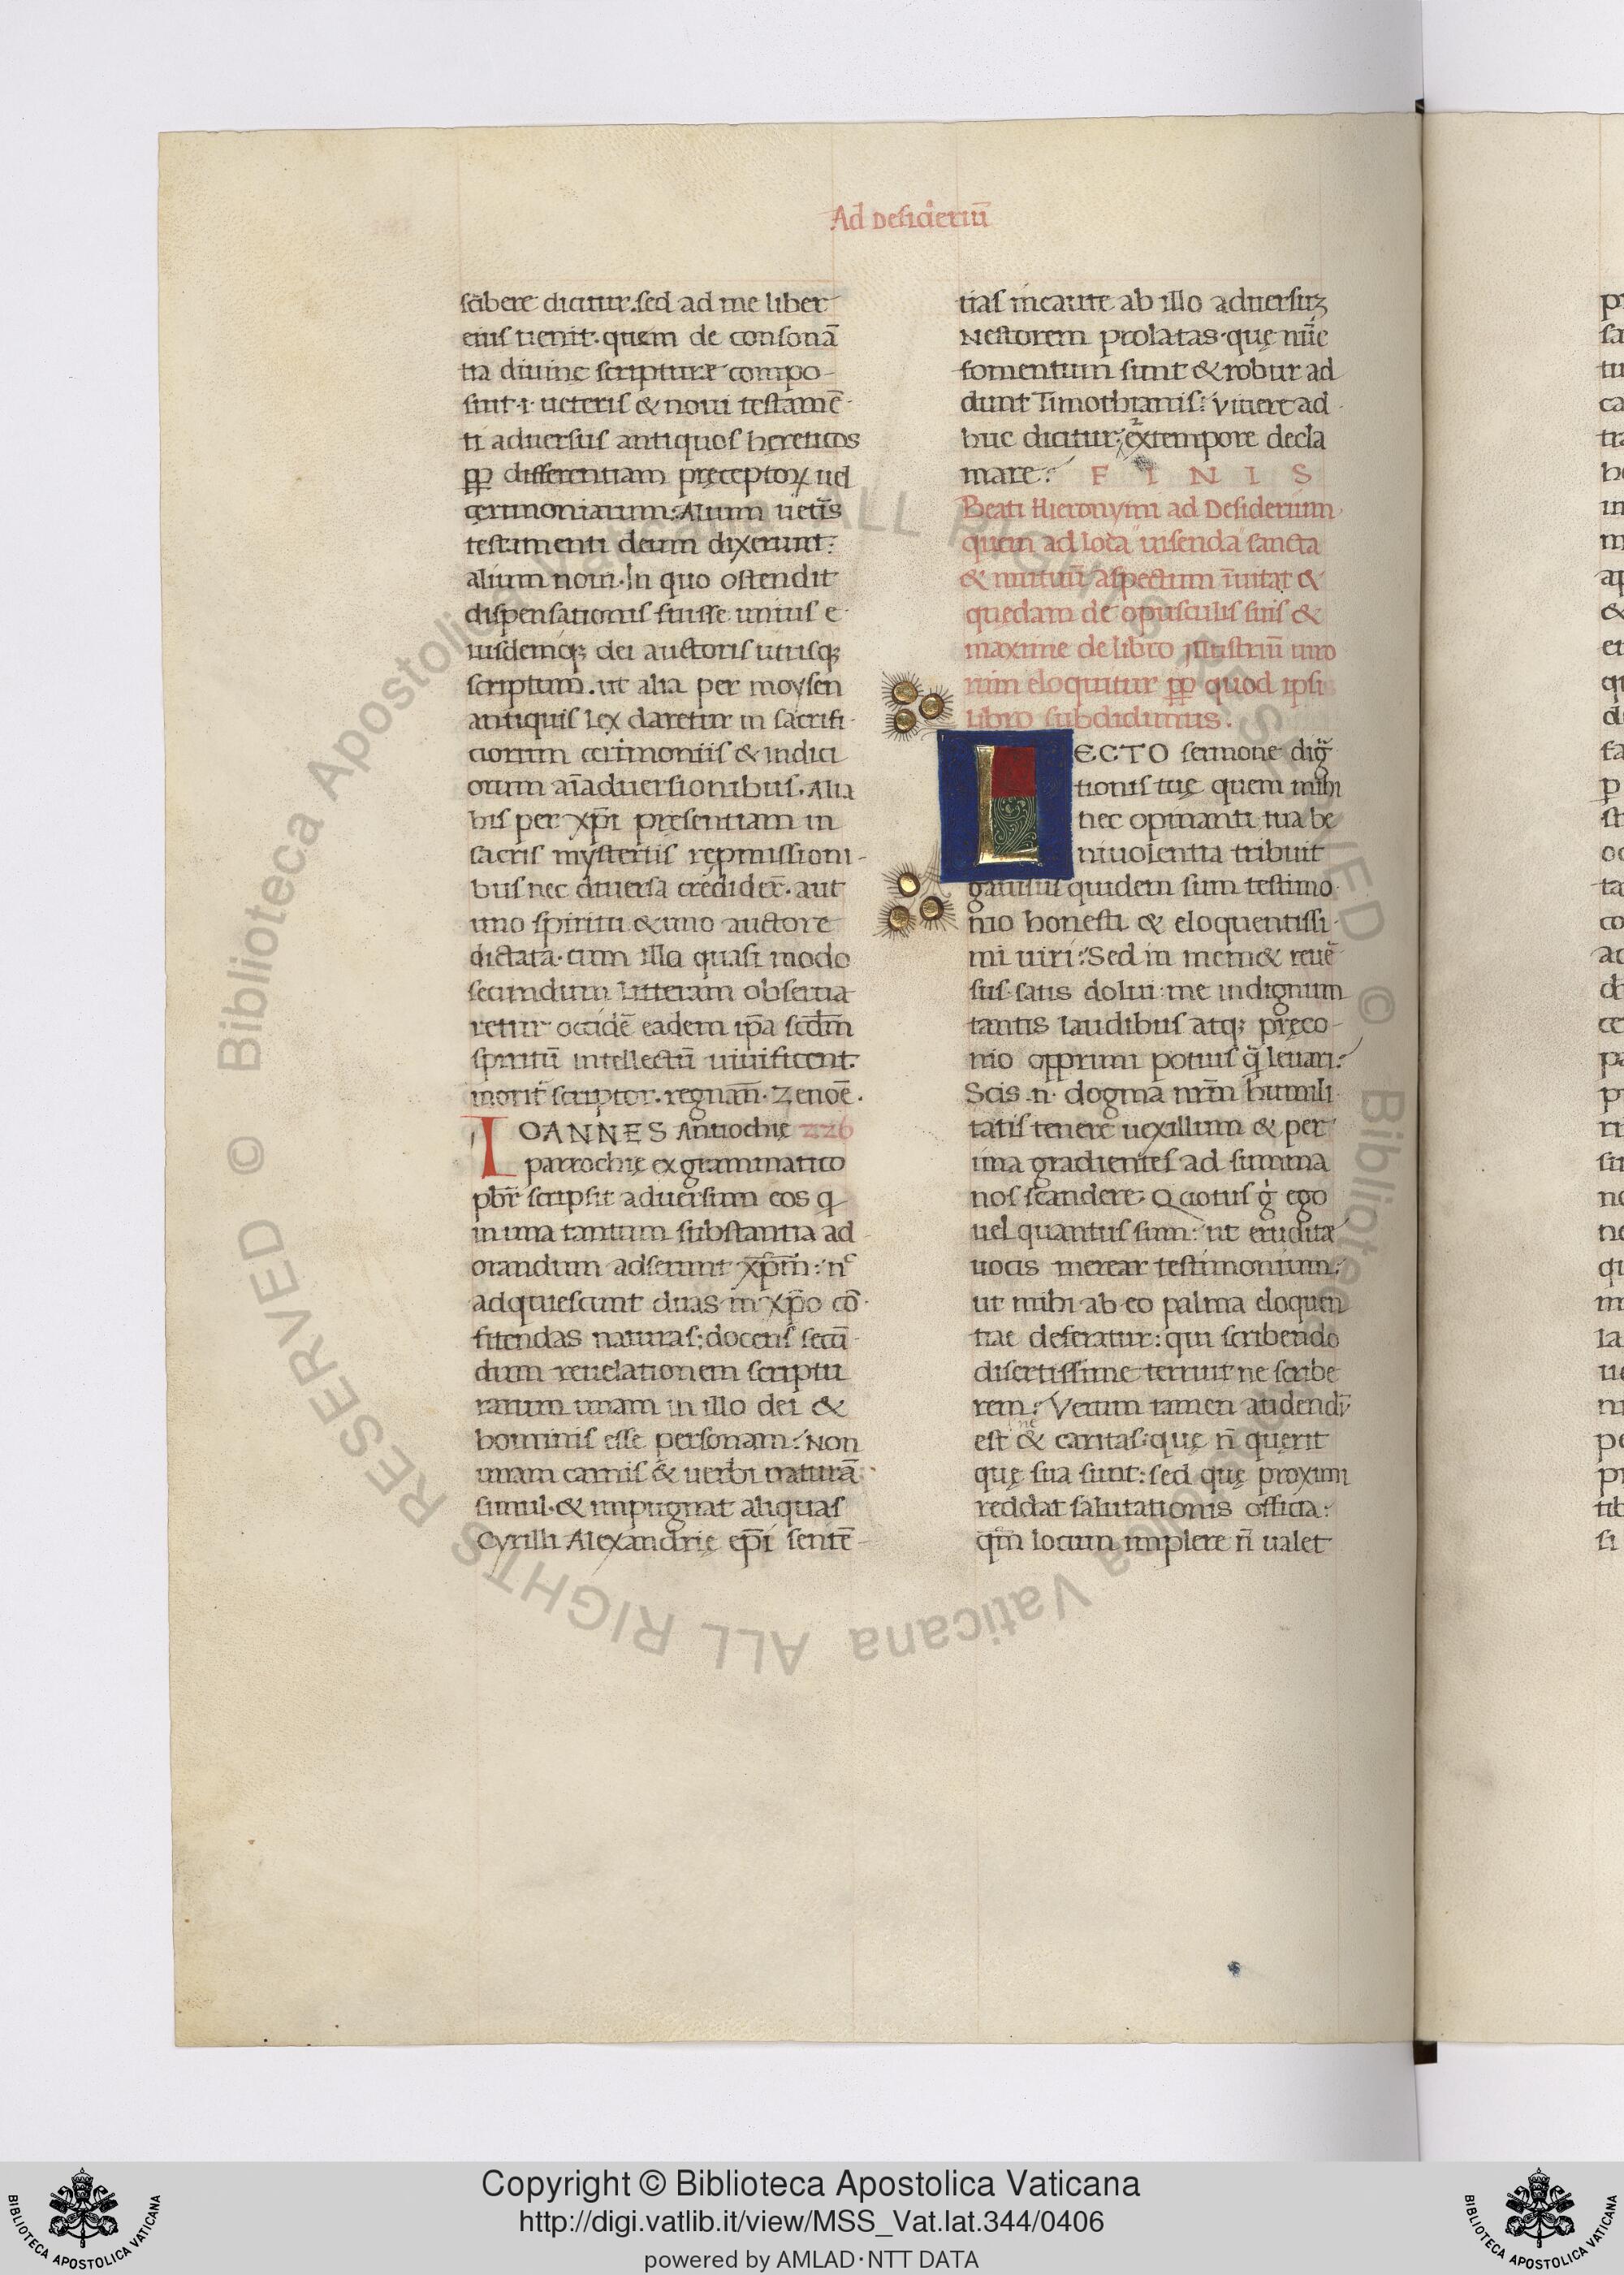 Ad Desideriū
scribere dicitur. sed ad me liber
eius uenit. quem de consonā
tia diuine scripturę compo-
suit. i. ueteris & noui testamē-
ti aduersus antiquos hereticos
ꝓp differentiam pręceptoꝝ uel
cerimoniarum: Alium uetīs
testamenti deum dixerunt:
alium noui. In quo ostendit
dispensationis fuisse unius e-
iusdemqꝫ dei auctoris utrisqꝫ
scriptum̄. ut alia per moysen
antiquis lex daretur in sacrifi-
ciorum cerimoniis & iudici
orum aīaduersionibus. Alia
his per xp̄i pręsentiam in
sacris mysteriis repmissioni-
bus nec diuersa credider̄. aut
uno spiritu & uno auctore
dictata. cum illa quasi modo
secundum litteram obserua
retur occidē eadem ip̄a scdm̄
spiritū intellectū uiuificent.
morit̄ scriptor. regnan̄. Zenoē.
IOANNES Antiochię 226
parrochię ex grammatico
pbr̄ scripsit aduersum eos q
in una tantum substantia ad-
orandum adserunt xp̄m: nc
adquiescunt duas in xp̄o cō-
fitendas naturas: docens secū-
dum reuelationem scriptu
rarum unam in illo dei &
hominis esse personam: Non
unam carnis & uerbi naturā.
simul. & impugnat aliquas
Cyrilli Alexandrię ep̄i sentē-
tias incaute ab illo aduersuꝫ
Nestorem prolatas. quę nūc
fomentum sunt & robur ad
dunt Timothianis: viuere ad-
huc dicitur: & extempore decla
mare: F I N I S
Beati Hieronymi ad Desiderium
quem ad loca uisenda sancta
& mutuū aspectum īuitat &
quedam de opusculis suis &
maxime de libro illustriū uiro
rum eloquitur ꝓp quod ipsi
libro subdidimus.
LECTO sermone dig
tionis tuę quem mihi
nec opinanti tua be
niuolentia tribuit
gauisus quidem sum testimo
nio honesti & eloquentissi-
mi uiri: Sed in memet reuē
sus satis dolui: me indignum
tantis laudibus atqꝫ pręco-
nio opprimi potius q̄ leuari:
Scis .n. dogma nrm̄ humili
tatis tenere uexillum & per
ima gradientes ad summa
nos scandere: Quotus g ego
uel quantus sum: ut eruditę
uocis merear testimonium:
ut mihi ab eo palma eloquen
tiae deferatur: qui scribendo
disertissime terruit ne scribe
rem: Verum tamen audendū
est ne & caritas: quę n̄ quęrit
quę sua sunt: sed quę proximi
reddat salutationis officia:
qm̄ locum implere n̄ ualet
Copyright © Biblioteca Apostolica Vaticana
http://digi.vatlib.it/view/MSS_Vat.lat.344/0406
powered by AMLAD·NTT DATA
BIBLIOTECA APOSTOLICA VATICANA
BIBLIOTECA APOSTOLICA VATICANA
© Biblioteca Apostolica Vaticana ALL RIGHTS RESERVED © Biblioteca Apostolica Vaticana ALL RIGHTS RESERVED